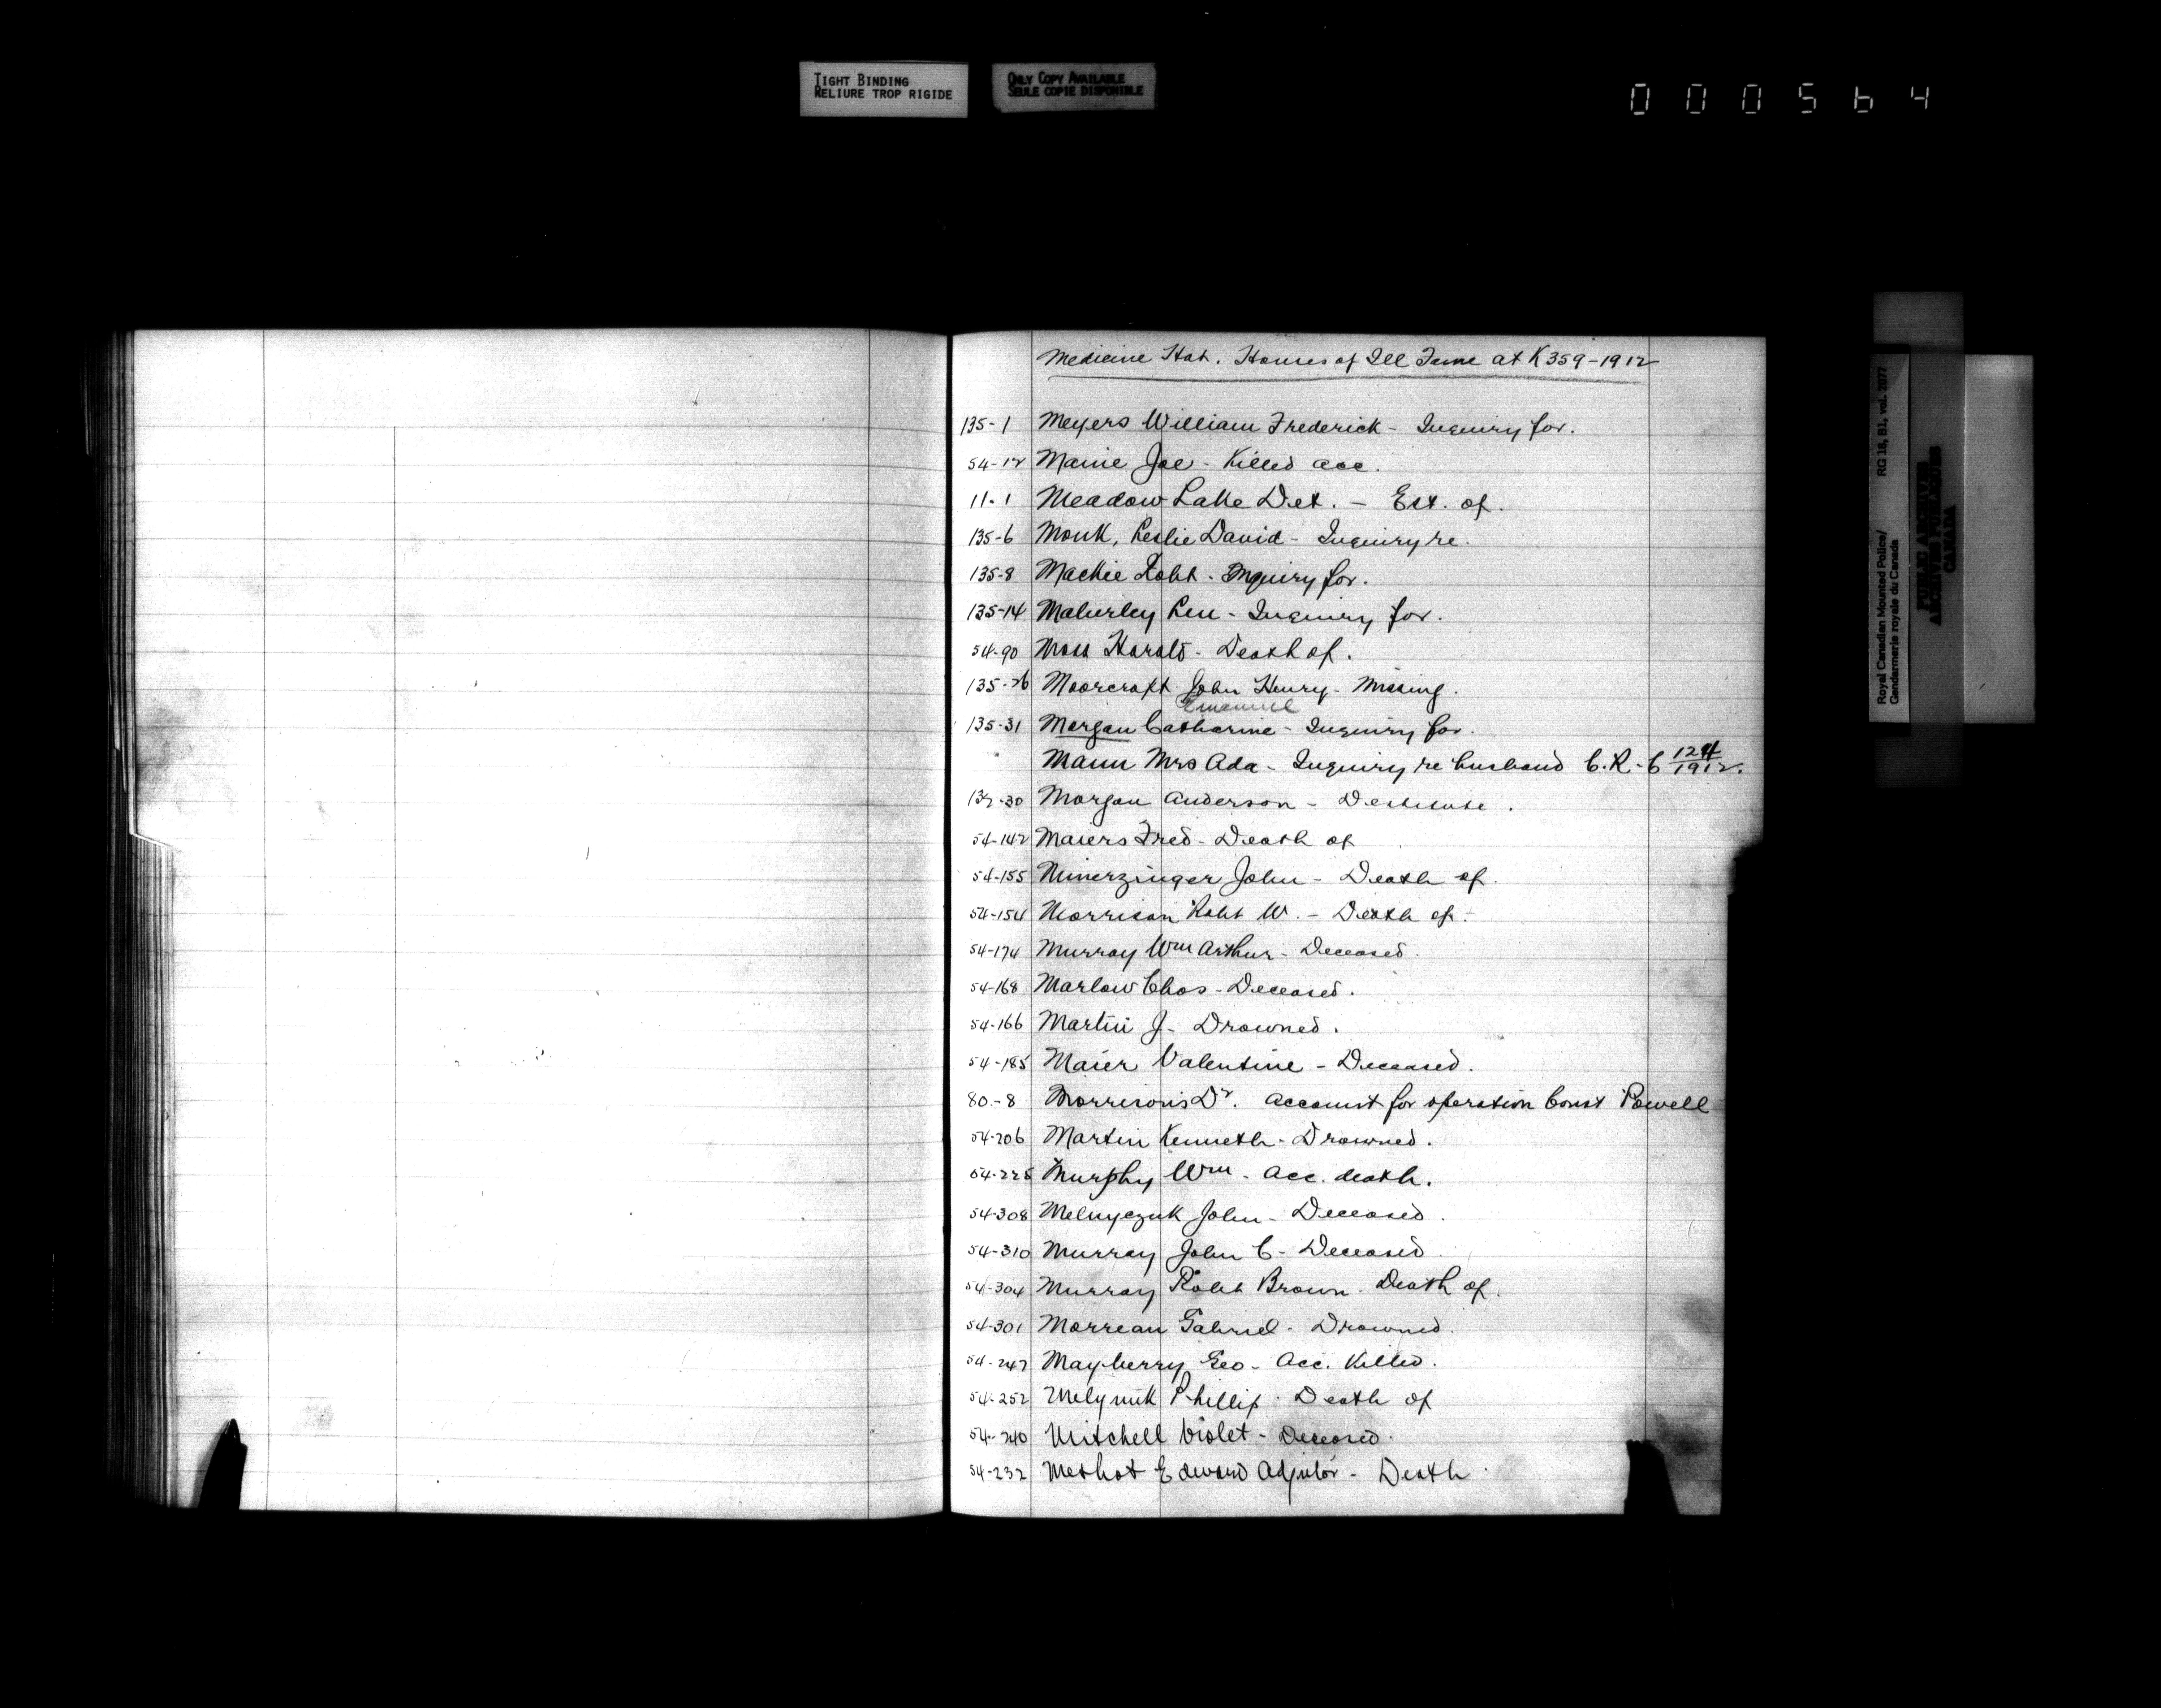 TIGHT BINDING
RELIURE TROP RIGIDE
ONLY COPY AVAILABLE
SEULE COPIE DISPONIBLE
000564
Medicine Hat. Houses of Ill Fame at K 359-1912
135-1 Meyers William Frederick - Inquiry for.
54-12 Maine Joe - Killed acc.
11-1 Meadow Lake Det. - Est. of.
135-6 Monk, Leslie David - Inquiry re.
135-8 Mackie Robt - Inquiry for.
135-14 Maberley Len - Inquiry for.
54-90 Moss Harold - Death of.
135-26 Moorcroft John Henry - Missing.
Emanuel
135-31 Morgan Catharine - Inquiry for.
Mann Mrs Ada - Inquiry re husband C.R.-C 124/1912.
132-30 Morgan Anderson - Destitute.
54-142 Maiers Fred - Death of
54-155 Minerzinger John - Death of.
54-154 Morrison Robt W. - Death of.
54-174 Murray Wm Arthur - Deceased.
54-168 Marlow Chas - Deceased.
54-166 Martin J - Drowned.
54-185 Maier Valentine - Deceased.
80-8 Morrison's Dr. Account for operation Const Powell
54-206 Martin Kenneth - Drowned.
54-225 Murphy Wm - Acc. death.
54-308 Melnyczuk John - Deceased.
54-310 Murray John C - Deceased.
54-304 Murray Robt Brown - Death of.
54-301 Morreau Gabriel - Drowned.
54-247 Mayberry Geo - Acc. Killed.
54-252 Melynuk Phillip - Death of
54-240 Mitchell Violet - Deceased.
54-232 Methot Edward Adjutor - Death
Royal Canadian Mounted Police/
Gendarmerie royale du Canada
RG 18, B1, vol. 2077
PUBLIC ARCHIVES
ARCHIVES PUBLIQUES
CANADA